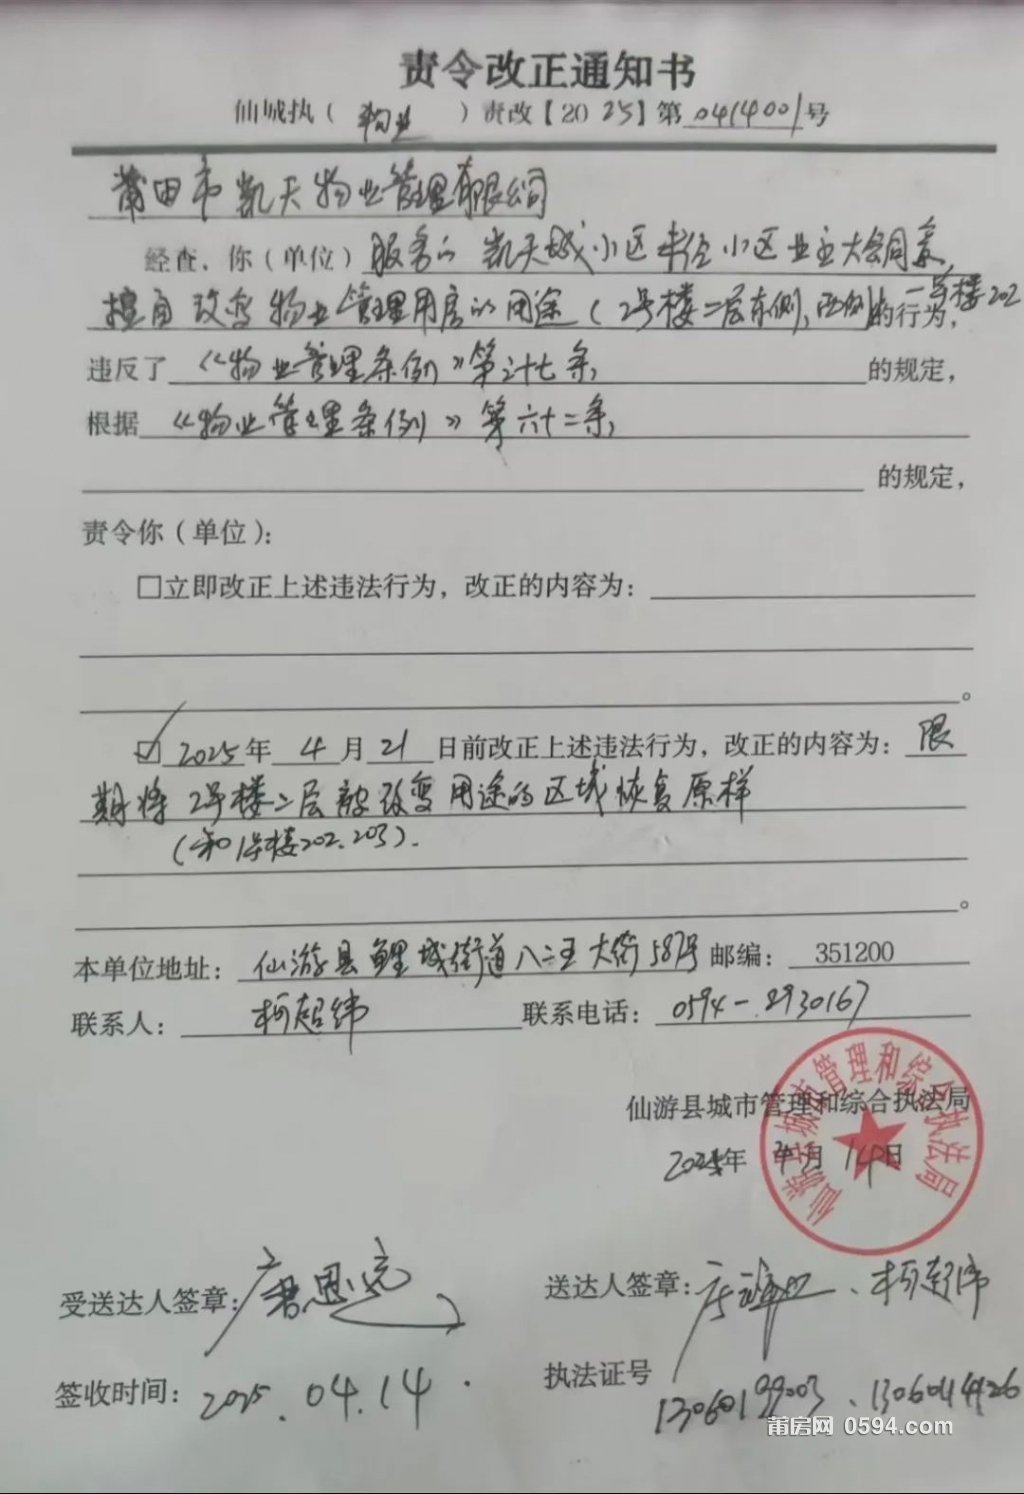 责令改正通知书
仙城执（物业）责改【2025】第0414001号
莆田市凯天物业管理有限公司
经查，你（单位）服务的凯天城小区未经小区业主大会同意，
擅自改变物业管理用房的用途（2号楼二层东侧、西侧、一号楼202的行为，
违反了《物业管理条例》第三十七条，的规定，
根据《物业管理条例》第六十二条，
的规定，
责令你（单位）：
□立即改正上述违法行为，改正的内容为：
。
☑2025年4月21日前改正上述违法行为，改正的内容为：限
期将2号楼二层被改变用途的区域恢复原样
（和1号楼202.203）.
。
本单位地址：仙游县鲤城街道八二五大街587号 邮编：351200
联系人：柯超纬 联系电话：0594-8930167
仙游县城市管理和综合执法局
2025年4月14日
仙游县城市管理和综合执法局
受送达人签章： 送达人签章：、柯超纬
签收时间：2025.04.14. 执法证号
13060199003、13060144026
莆房网 0594.com